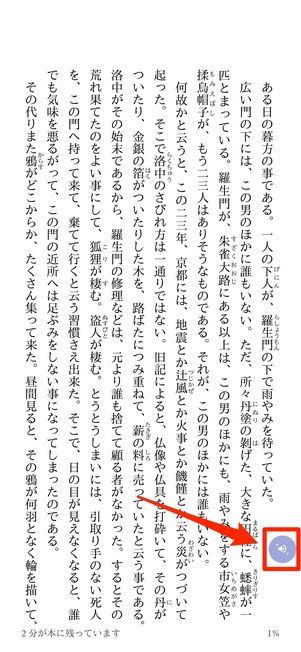 ある日の暮方の事である。一人の下人が、羅生門の下で雨やみを待っていた。
広い門の下には、この男のほかに誰もいない。ただ、所々丹塗の剥げた、大きな円柱に、蟋蟀が一
匹とまっている。羅生門が、朱雀大路にある以上は、この男のほかにも、雨やみをする市女笠や
揉烏帽子が、もう二三人はありそうなものである。それが、この男のほかには誰もいない。
何故かと云うと、この二三年、京都には、地震とか辻風とか火事とか饑饉とか云う災がつづいて
起った。そこで洛中のさびれ方は一通りではない。旧記によると、仏像や仏具を打砕いて、その丹が
ついたり、金銀の箔がついたりした木を、路ばたにつみ重ねて、薪の料に売っていたと云う事である。
洛中がその始末であるから、羅生門の修理などは、元より誰も捨てて顧る者がなかった。するとその
荒れ果てたのをよい事にして、狐狸が棲む。盗人が棲む。とうとうしまいには、引取り手のない死人
を、この門へ持って来て、棄てて行くと云う習慣さえ出来た。そこで、日の目が見えなくなると、誰
でも気味を悪るがって、この門の近所へは足ぶみをしない事になってしまったのである。
その代りまた鴉がどこからか、たくさん集って来た。昼間見ると、その鴉が何羽となく輪を描いて、
2 分が本に残っています
1%